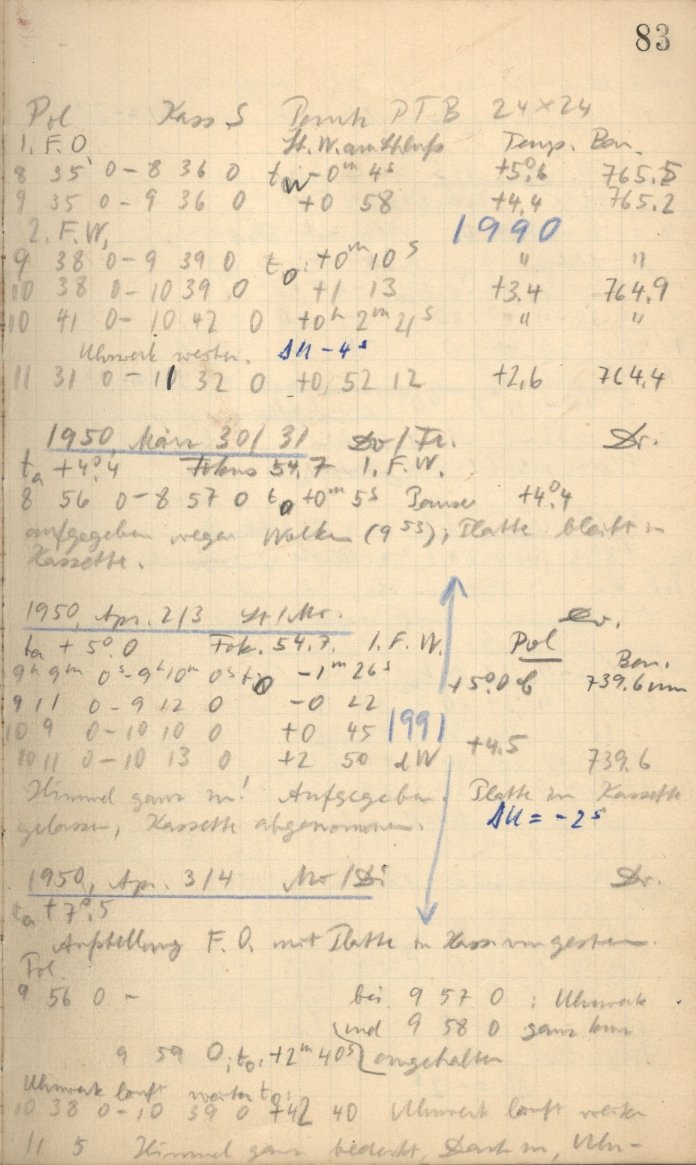 83
Pol Kass S PTB 24×24
1. F.O. St.W. am Schluß Temp. Bar.
8 35 0 – 8 36 0 tw –0m 4s +5°.6 765.5
9 35 0 – 9 36 0 +0 58 +4.4 765.2
2. F.W. 1990
9 38 0 – 9 39 0 to: +0m 10s " "
10 38 0 – 10 39 0 +1 13 +3.4 764.9
10 41 0 – 10 42 0 +0h 2m 21s " "
Uhrwerk weiter. ΔU –4s
11 31 0 – 11 32 0 +0 52 12 +2.6 764.4
1950, März 30/31 Dr.
ta +4°.4 Fokus 54.7 1. F.W.
8 56 0 – 8 57 0 to +0m 5s +4°.4
aufgegeben wegen Wolken (9 55); Platte bleibt in
Kassette.
1950, Apr. 2/3 St/Mo. Dr.
ta + 5°.0 Fok. 54.7. 1. F.W. Pol
Bar.
9h 9m 0s – 9h 10m 0s to –1m 26s +5°.0 739.6mm
9 11 0 – 9 12 0 –0 22
10 9 0 – 10 10 0 +0 45 1991
10 11 0 – 10 13 0 +2 50 +4.5 739.6
Himmel ganz zu! Aufgegeben. Platte in Kassette
gelassen, Kassette abgenommen. ΔU = –2s
1950, Apr. 3/4 Mo/Di Dr.
ta +7°.5
Aufstellung F.O. mit Platte in Kass. von gestern.
Pol.
9 56 0 – bei 9 57 0 : Uhrwerk
und 9 58 0 ganz kurz
9 59 0; to: +2m 40s angehalten
Uhrwerk läuft weiter to:
10 38 0 – 10 39 0 +42 40 Uhrwerk läuft weiter
11 5 Himmel ganz bedeckt, Dach zu, Uhr-